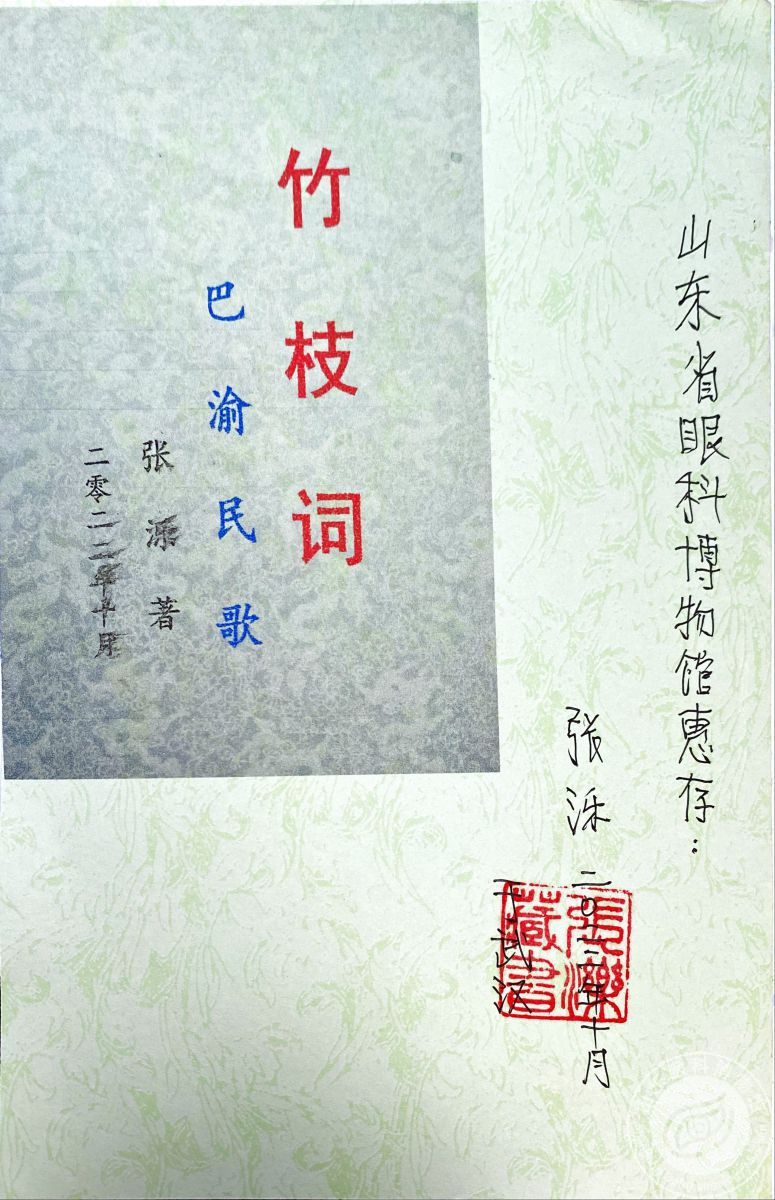 山东省眼科博物馆惠存：
张泺 二〇二二年十月
于武汉
張濼
藏書
竹枝词
巴渝民歌
张泺著
二零二二年十月